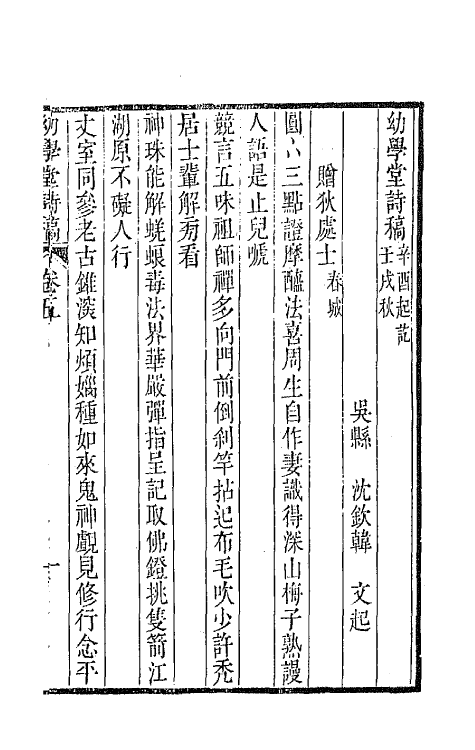 幼學堂詩稿 辛酉起訖
壬戌秋
吳縣 沈欽韓 文起
贈狄處士 春城
圓八三點證摩醯法喜周生自作妻識得深山梅子熟謾
人語是止兒嗁
競言五味祖師禪多向門前倒刹竿拈起布毛吹少許禿
居士輩解㫄看
神珠能解蜣蜋毒法界華嚴彈指呈記取佛鐙挑隻箭江
湖原不礙人行
丈室同參老古錐深知煩惱種如來鬼神覷見修行念平
幼學堂詩稿 卷五 一